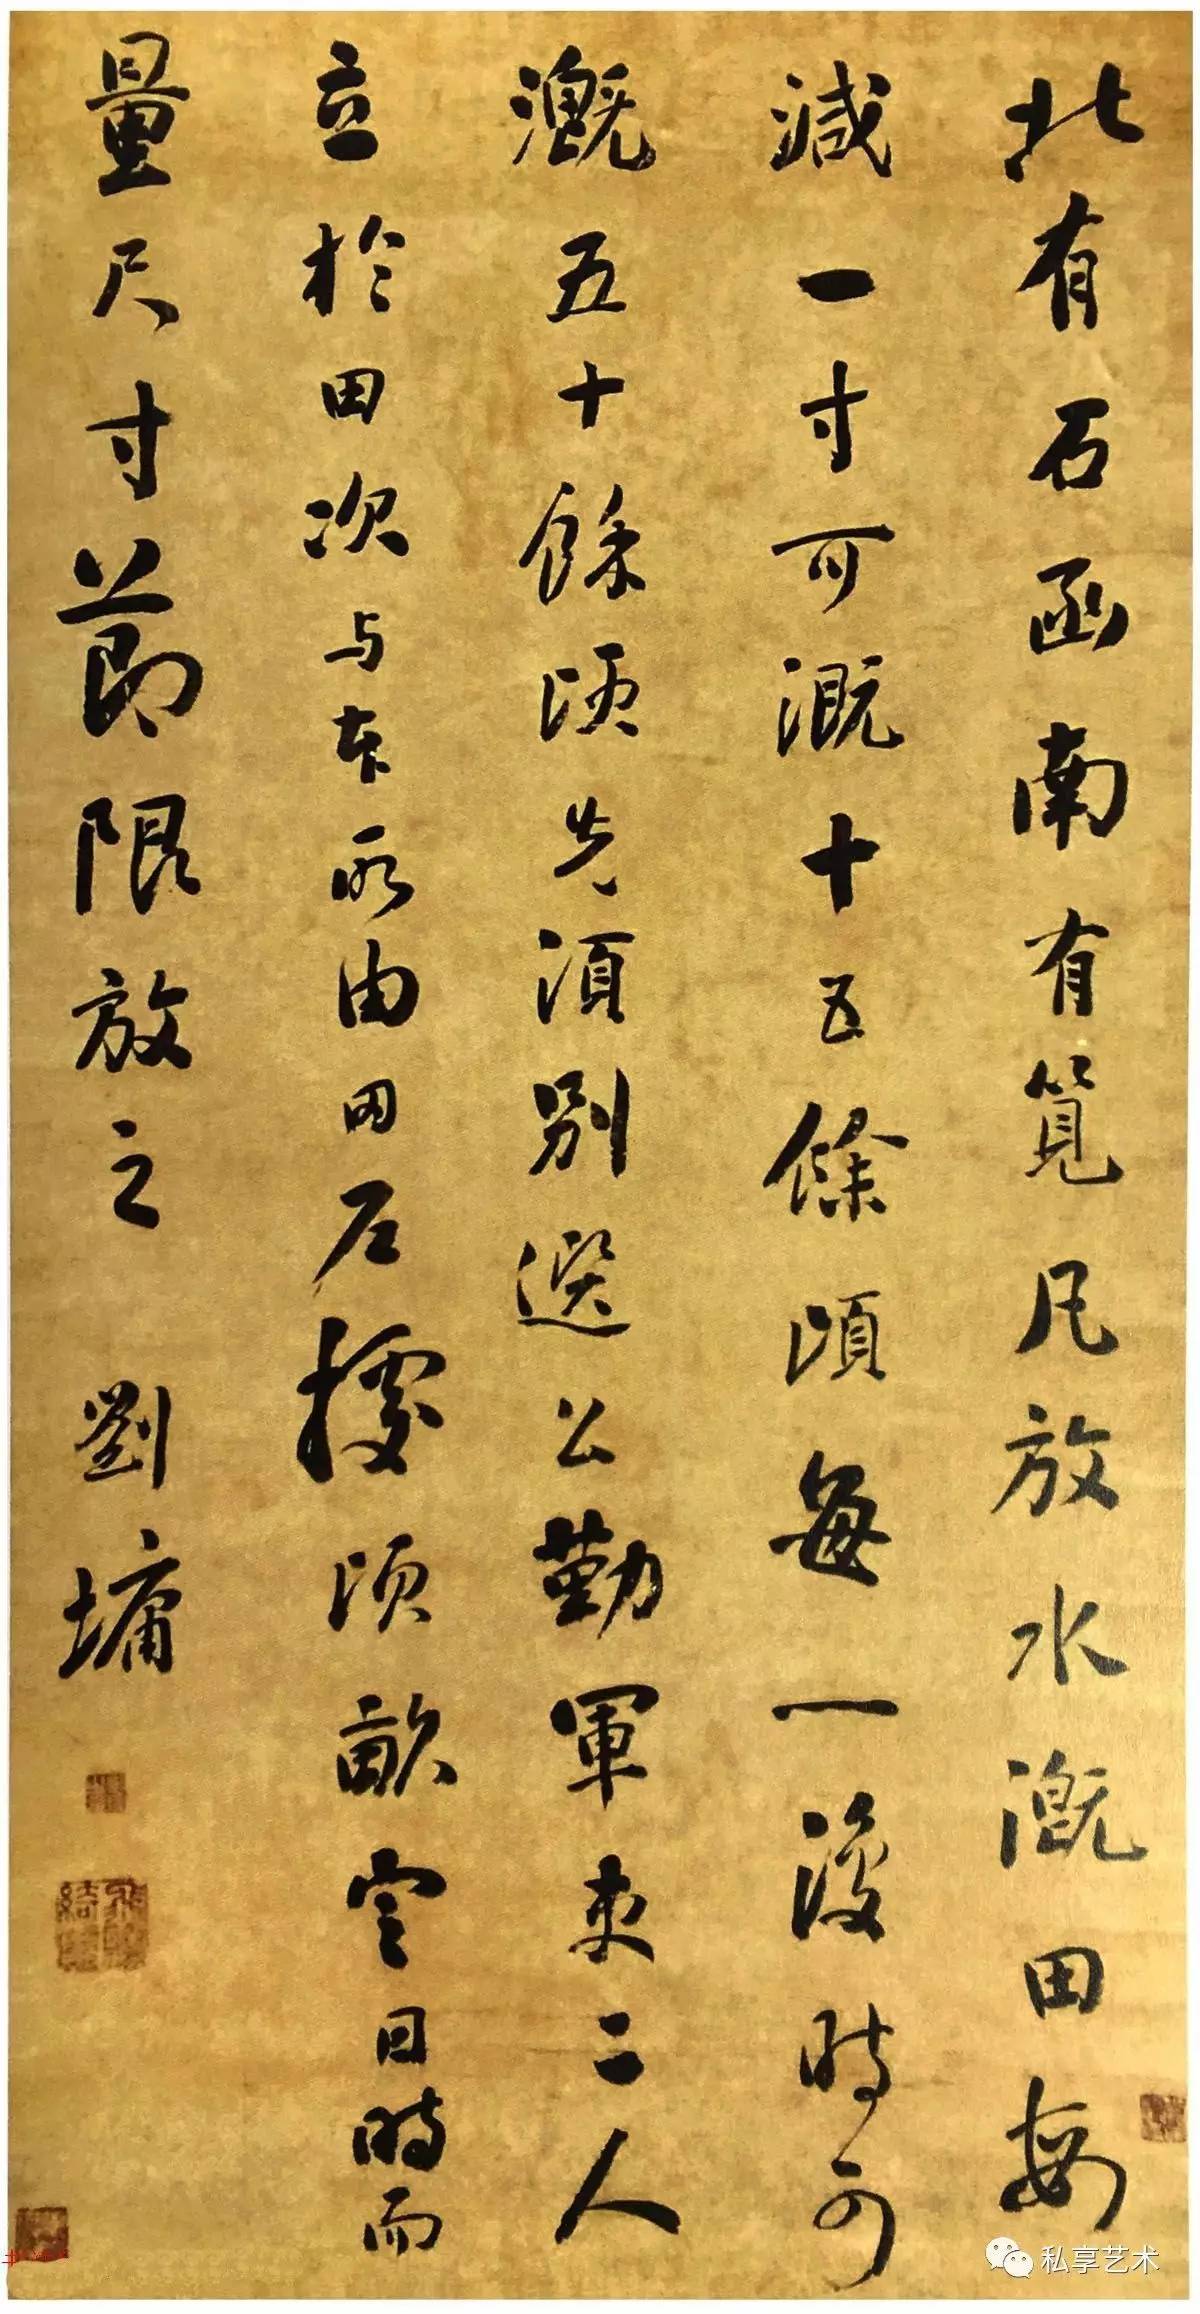 北有石函南有筧凡放水溉田每
減一寸可溉十五餘頃每一復時可
溉五十餘頃先須別選公勤軍吏二人
立於田次与本所由田戶據頃畝定日時而
量尺寸節限放之
劉墉
私享艺术